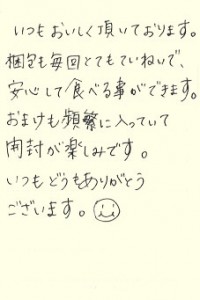 いつもおいしく頂いております。
梱包も毎回とてもていねいで、
安心して食べる事ができます。
おまけも頻繁に入っていて
開封が楽しみです。
いつもどうもありがとう
ございます。